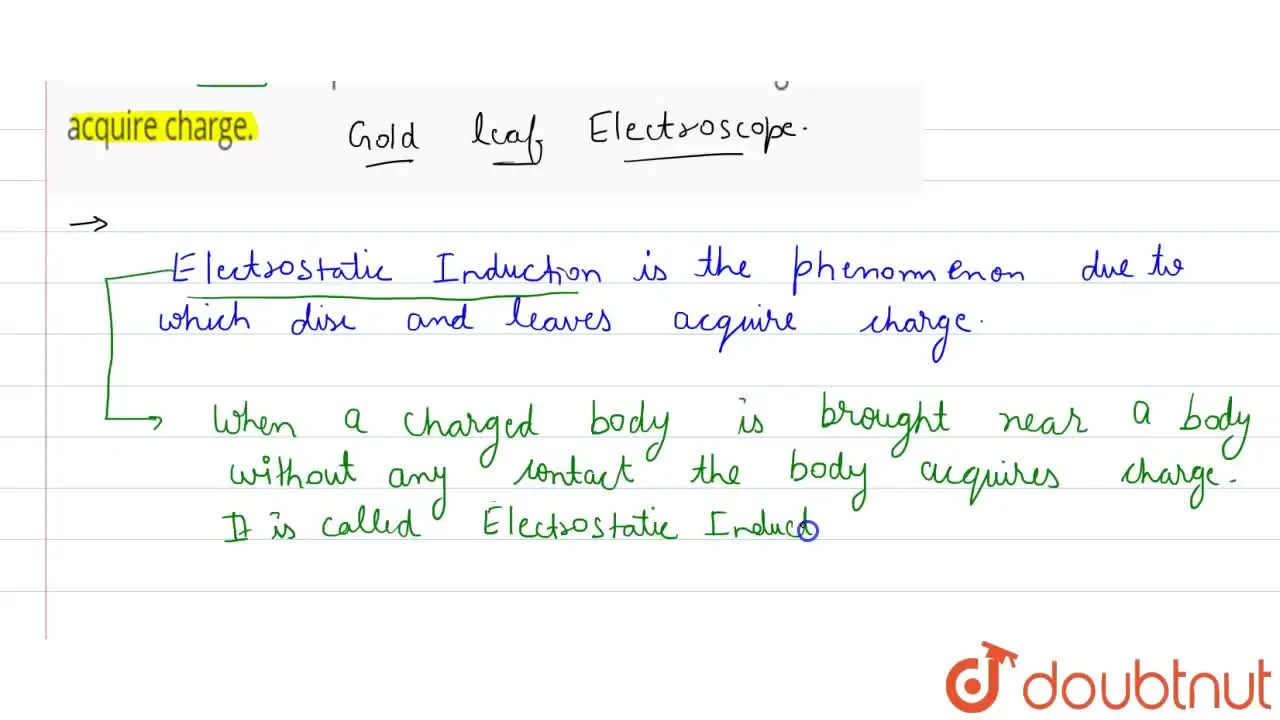 acquire charge.
Gold leaf Electroscope.
→
Electrostatic Induction is the phenomenon due to
which disc and leaves acquire charge.
When a charged body is brought near a body
without any contact the body acquires charge.
It is called Electrostatic Induct
doubtnut